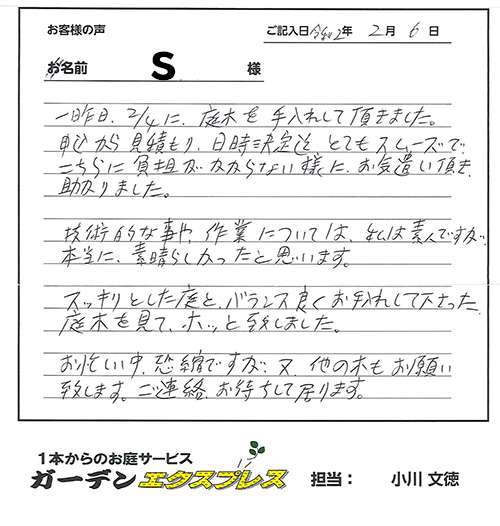 お客様の声
ご記入日 令和2年 2月 6日
お名前 S 様
一昨日、2/4に、庭木を手入れして頂きました。
申込から見積もり、日時決定迄、とてもスムーズで
こちらに負担がかからない様に、お気遣い頂き
助かりました。
技術的な事や、作業については、私は素人ですが、
本当に、素晴らしかったと思います。
スッキリとした庭と、バランス良くお手入れして下さった
庭木を見て、ホッと致しました。
お忙しい中、恐縮ですが、又、他の木もお願い
致します。ご連絡、お待ちして居ります。
1本からのお庭サービス
ガーデンエクスプレス 担当： 小川 文徳